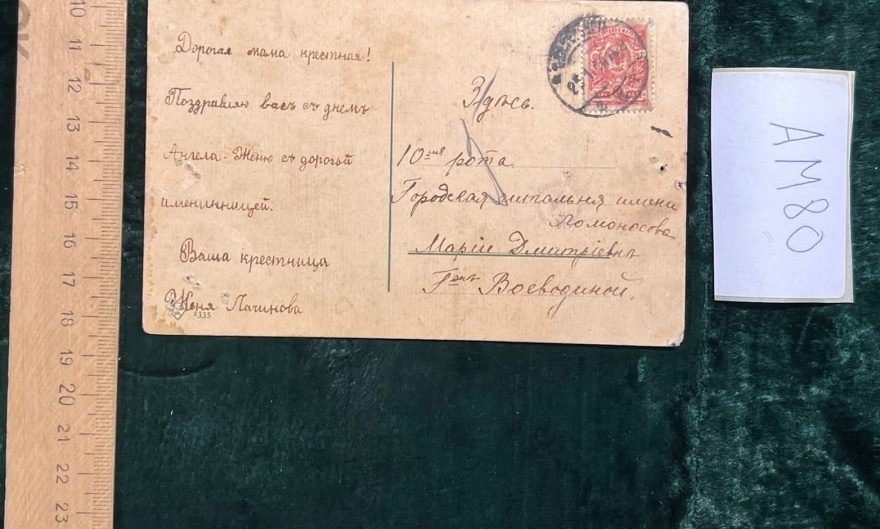 Дорогая мама крестная!
Поздравляю васъ съ днемъ
Ангела. Женю съ дорогой
именинницей.
Ваша крестница
Женя Лачинова
1335
Здѣсь.
10-ая рота
Городская читальня имени
Ломоносова
Маріи Дмитріевнѣ
Г-жѣ Воеводиной.
AM80
10
11
12
13
14
15
16
17
18
19
20
21
22
23